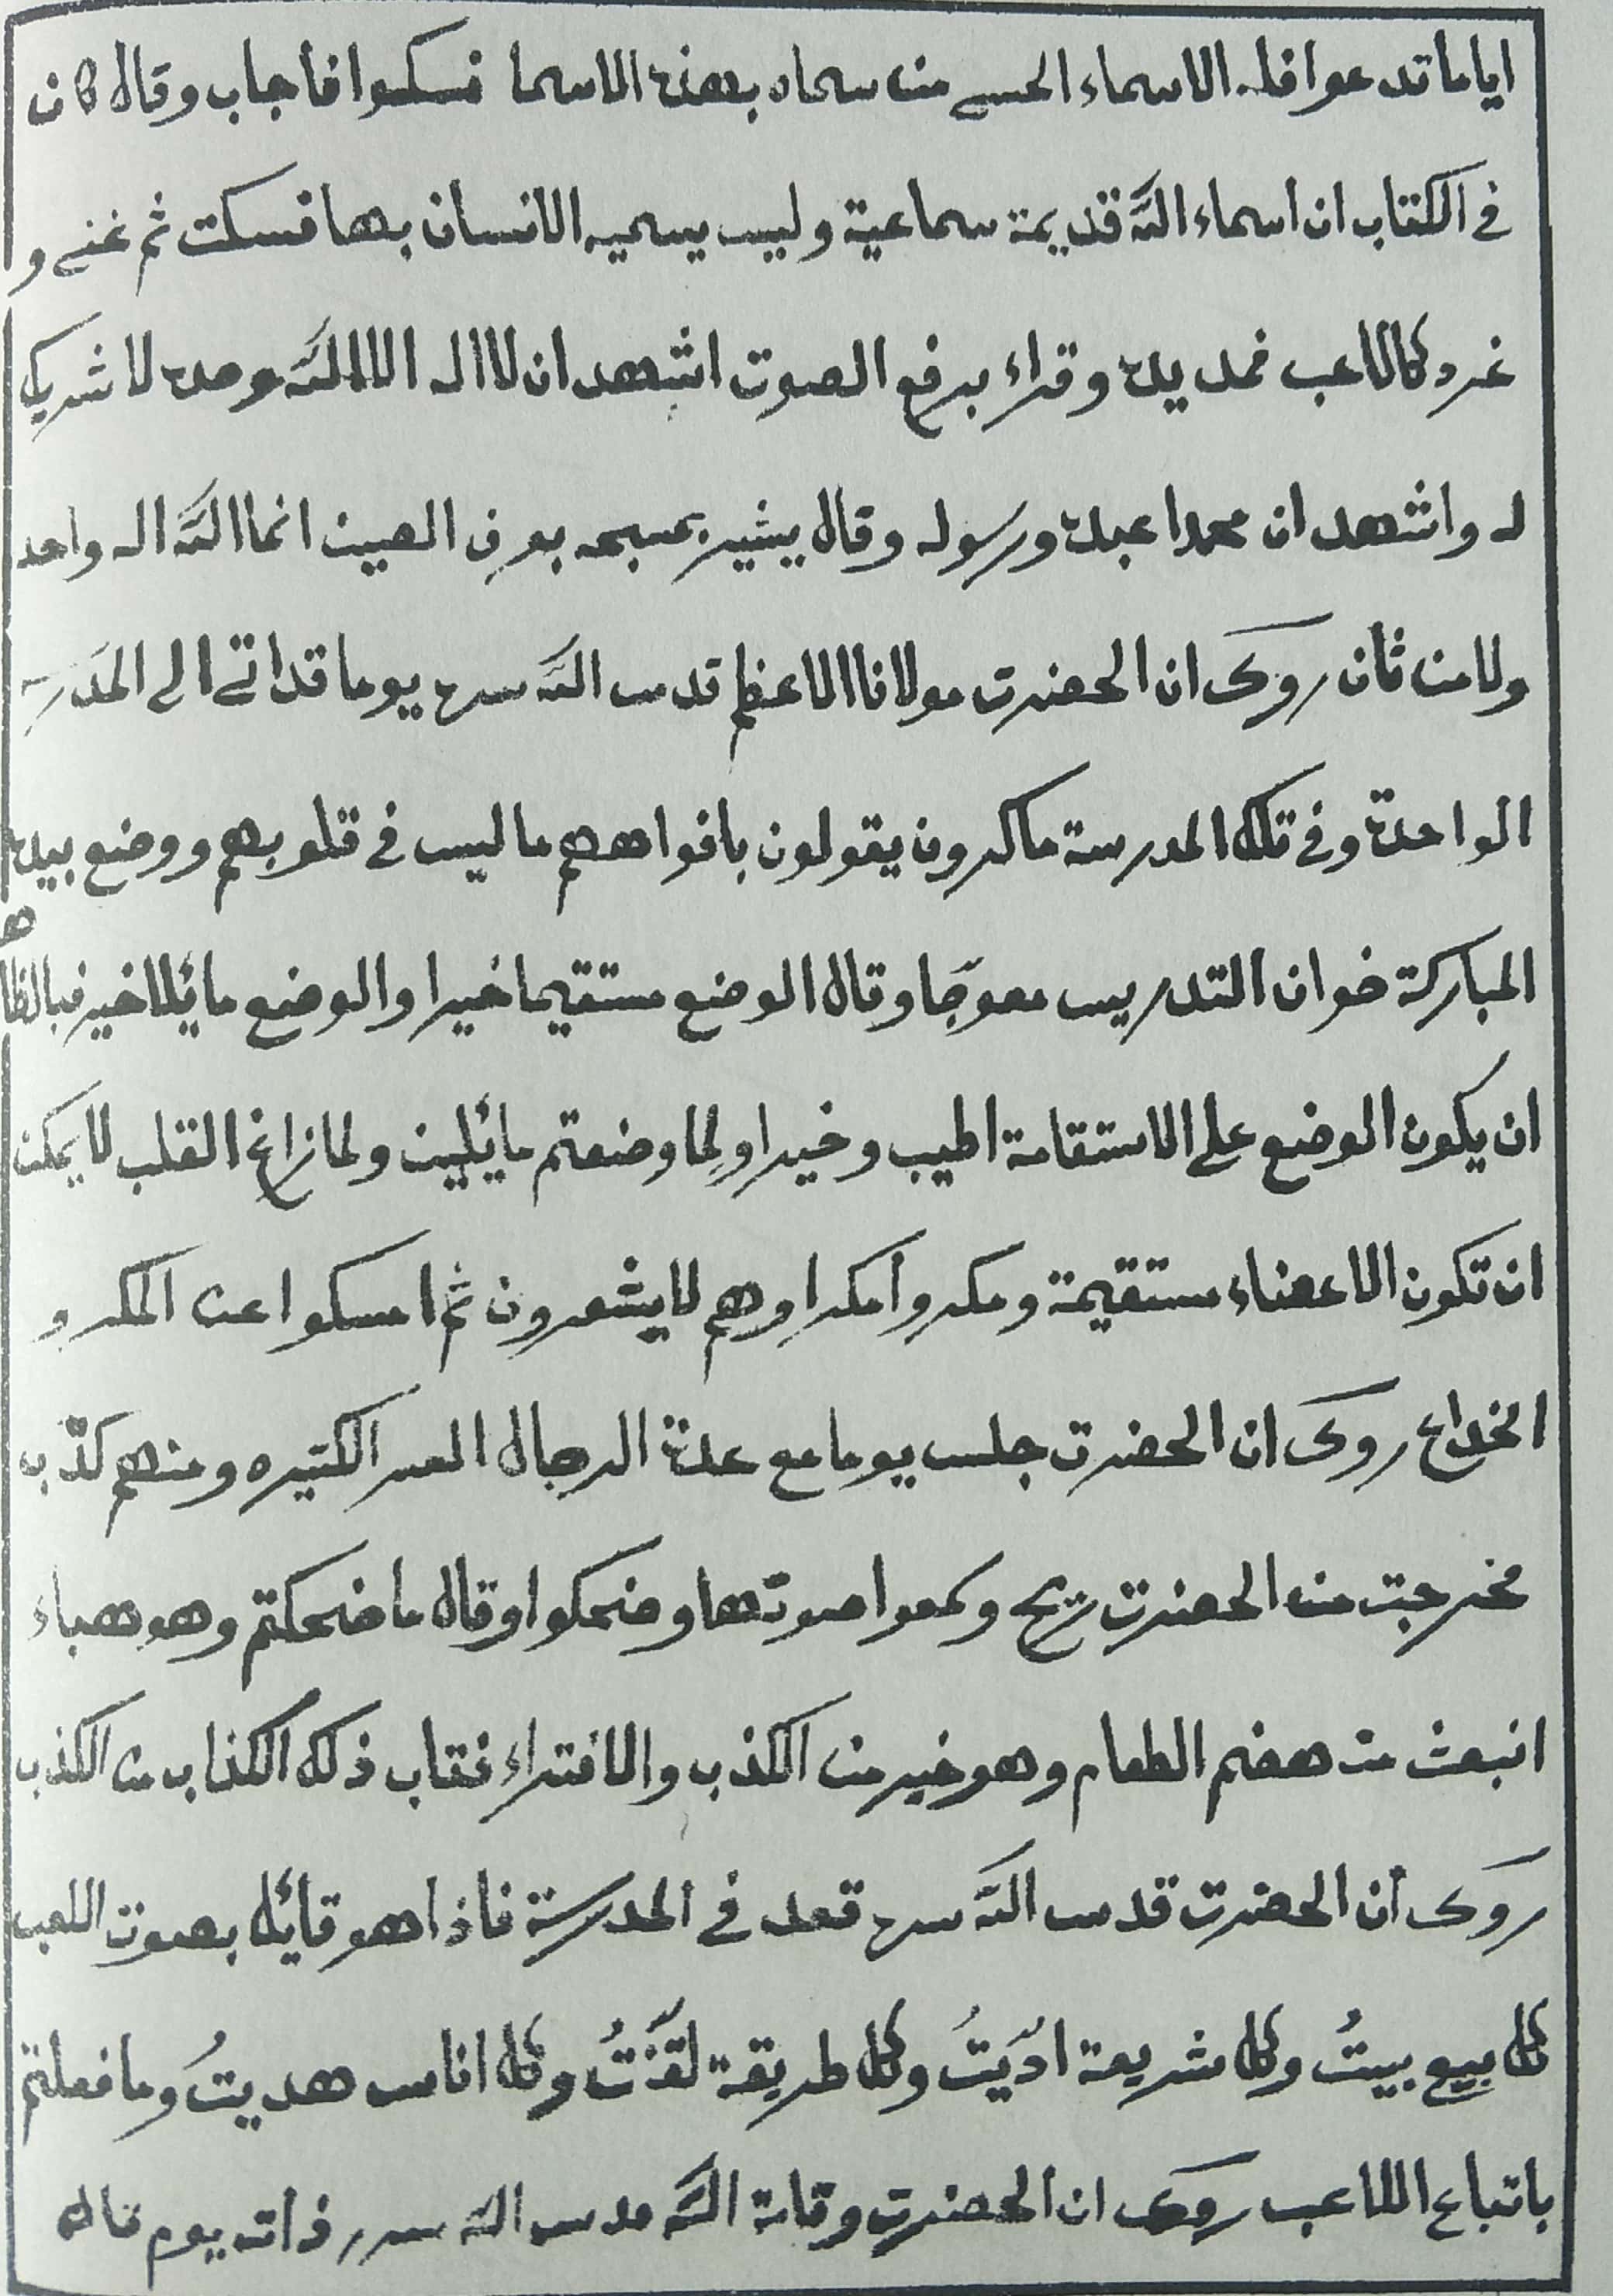 اياما تدعوا فله الاسماء الحسنى من سماه بهذه الاسما فسكتوا فاجاب وقال كان
في الكتاب ان اسماء الله قديمة سماعية وليس يسميه الانسان بها فسكت ثم غنى و
غرد كاللاعب فمد يده وقراء برفع الصوت اشهد ان لا اله الا الله وحده لا شريك
له واشهد ان محمدا عبده ورسوله وقال يشير بمسبحه انما الله اله واحد
ولا من ثان روى ان الحضرت مولانا الاعظم قدس الله سره يوما قد اتى الى المدرسة
الواحدة وفي تلك المدرسة ماكرون يقولون بافواههم ما ليس في قلوبهم ووضع بيده
المباركة خوان التدريس معوجّا وقال الوضع مستقيما خير او الوضع مائلا خير فبالظاهر
ان يكون الوضع على الاستقامة اطيب وخيرا ولِما وضعتم مائلين ولما زاغ القلب لا يمكن
ان تكون الاعضاء مستقيمة ومكروا مكرا وهم لا يشعرون ثم امسكوا عن المكر و
الخداع روى ان الحضرت جلس يوما مع عدة الرجال الكثيره ومنهم كذّب
فخرجت من الحضرت ريح وسمعوا صوتها وضحكوا وقال ما ضحكتم وهو هباء
انبعث من هضم الطعام وهو خير من الكذب والافتراء فتاب ذلك الكذاب من الكذب
روى أن الحضرت قدس الله سره قعد في المدرسة فاذا هو قائل بصوت اللعب
كل بيع بيتُ وكل شريعة ادّيتُ وكل طريقة لقّنتُ وكل اناس هديتُ وما فعلتم
باتباع اللاعب روى ان الحضرت وقامة الله قدس الله سره ذات يوم قال